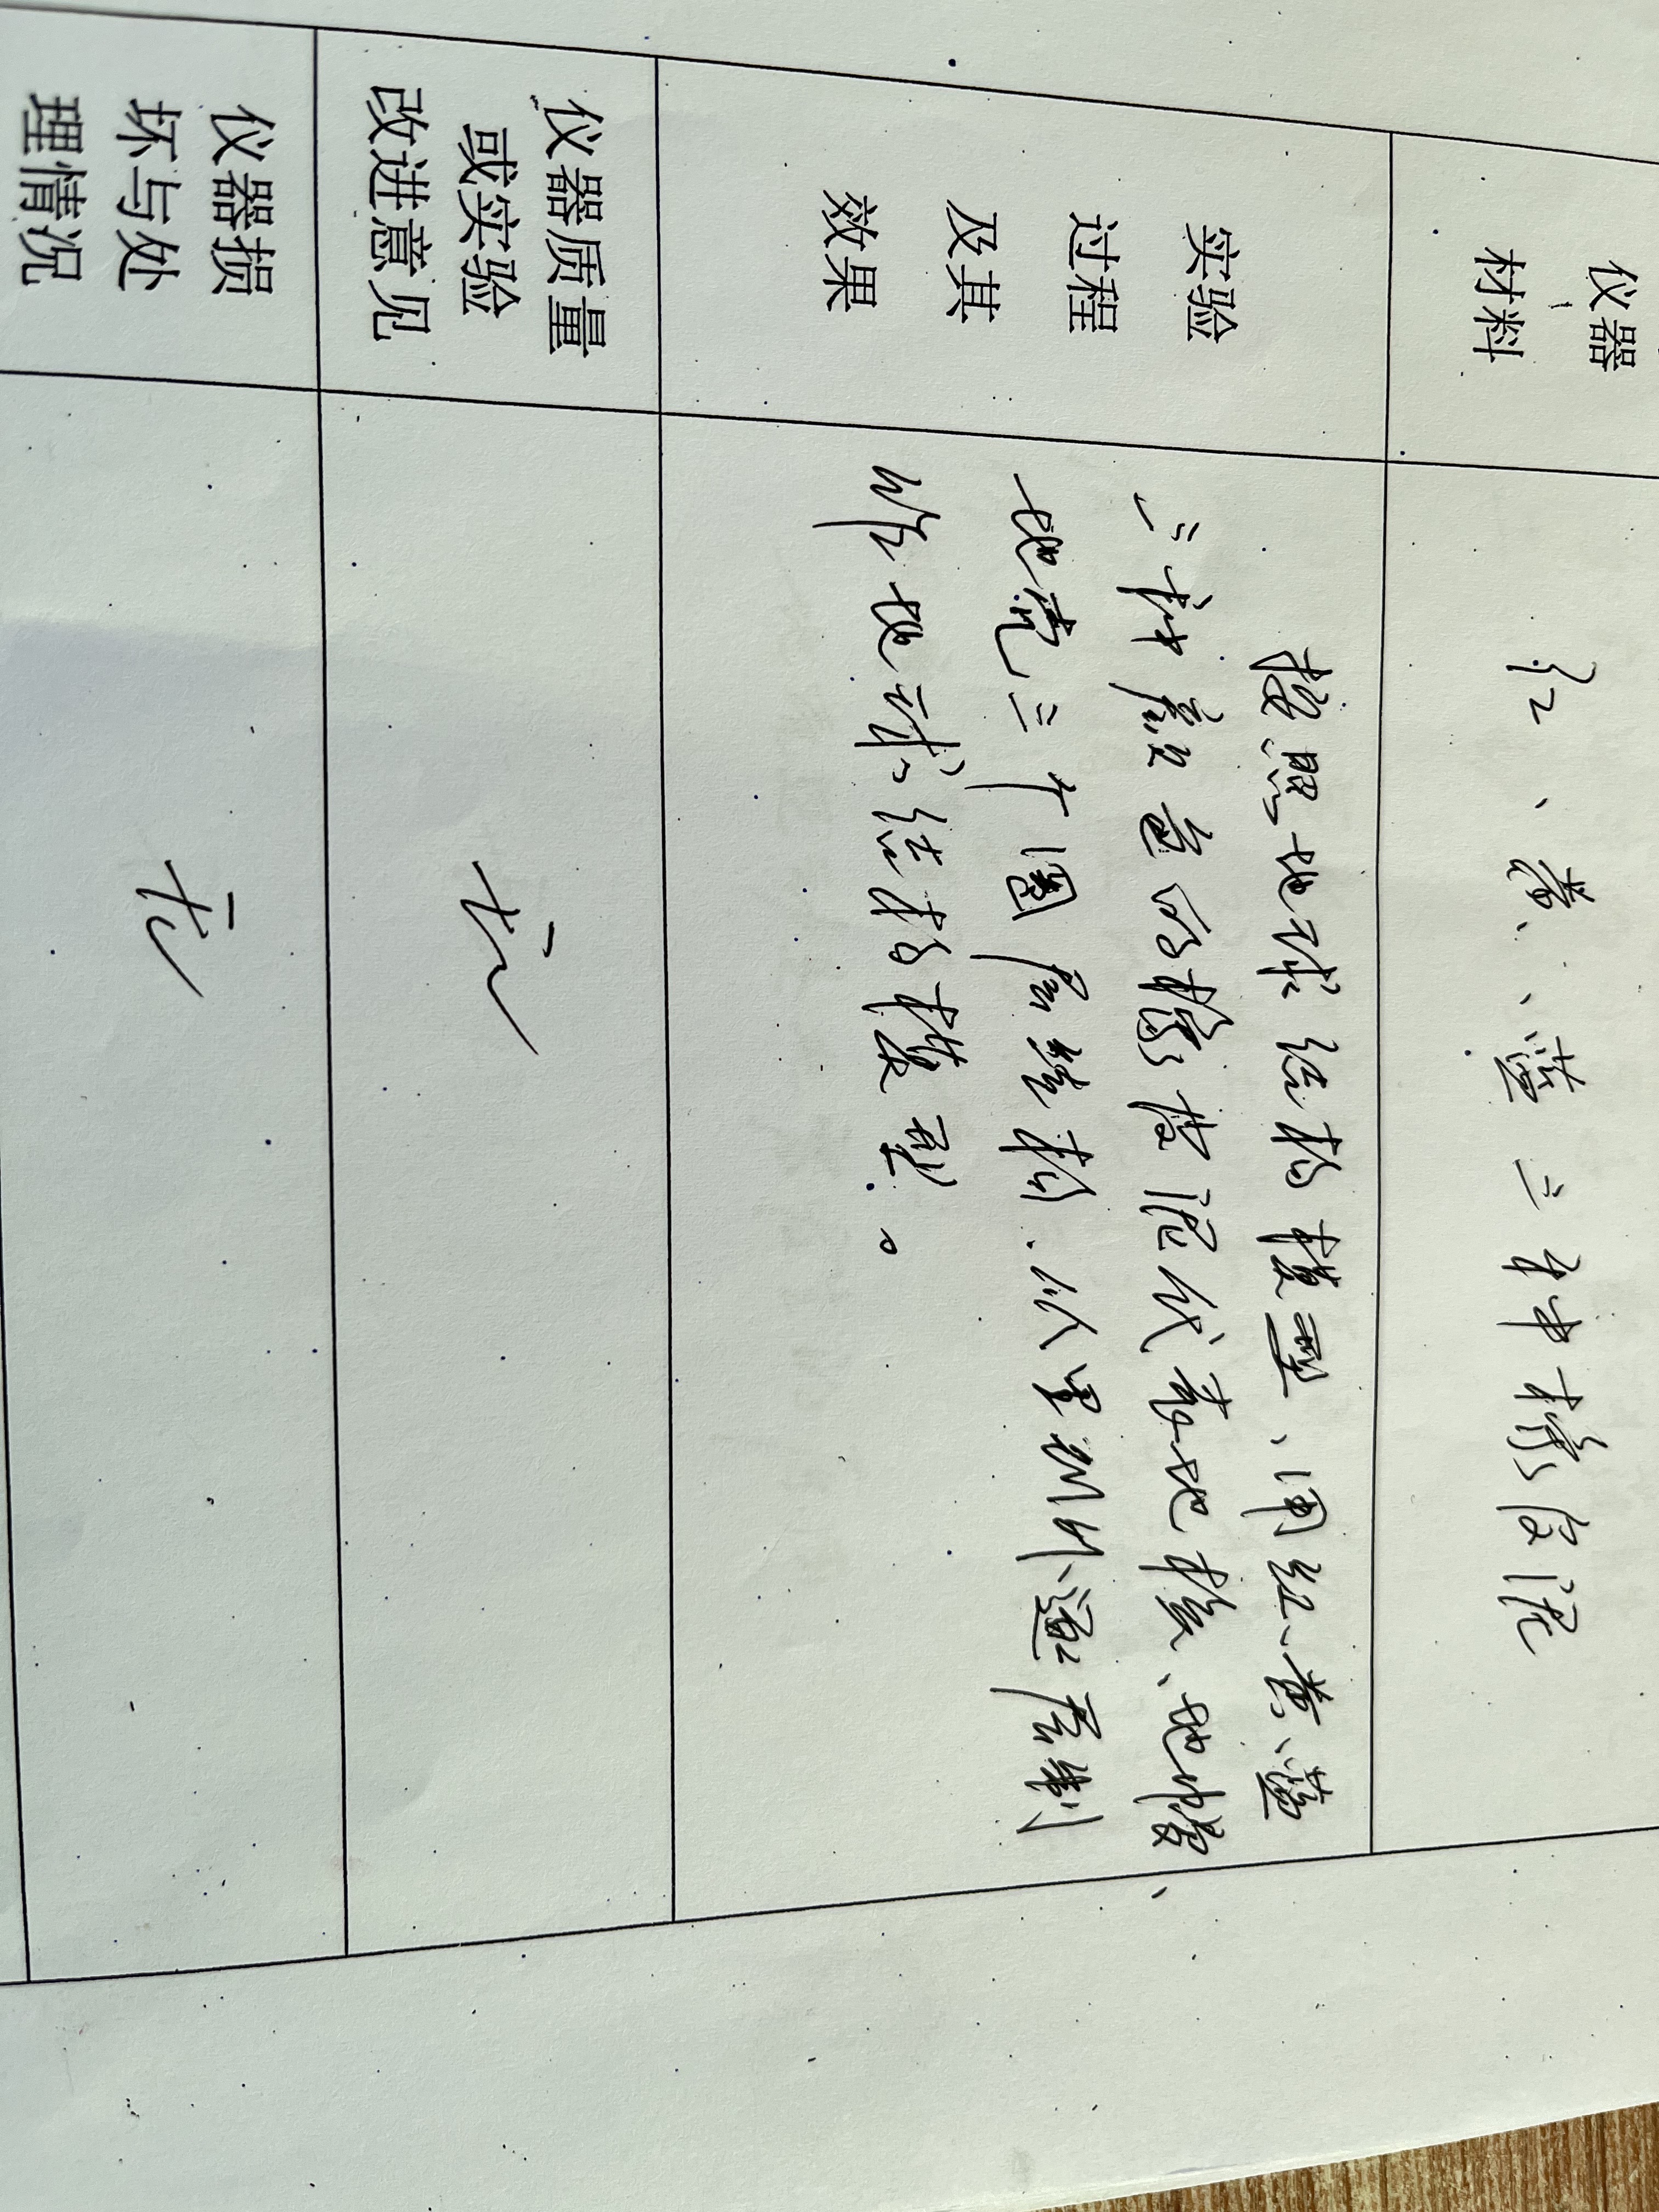 仪器
材料
红、黄、蓝三种橡皮泥
实验
过程
及其
效果
按照地球结构模型、用红、黄、蓝
三种颜色的橡皮泥代表地核、地幔、
地壳三个圈层结构.从里到外逐层制
作地球结构模型。
仪器质量
或实验
改进意见
无
仪器损
坏与处
理情况
无